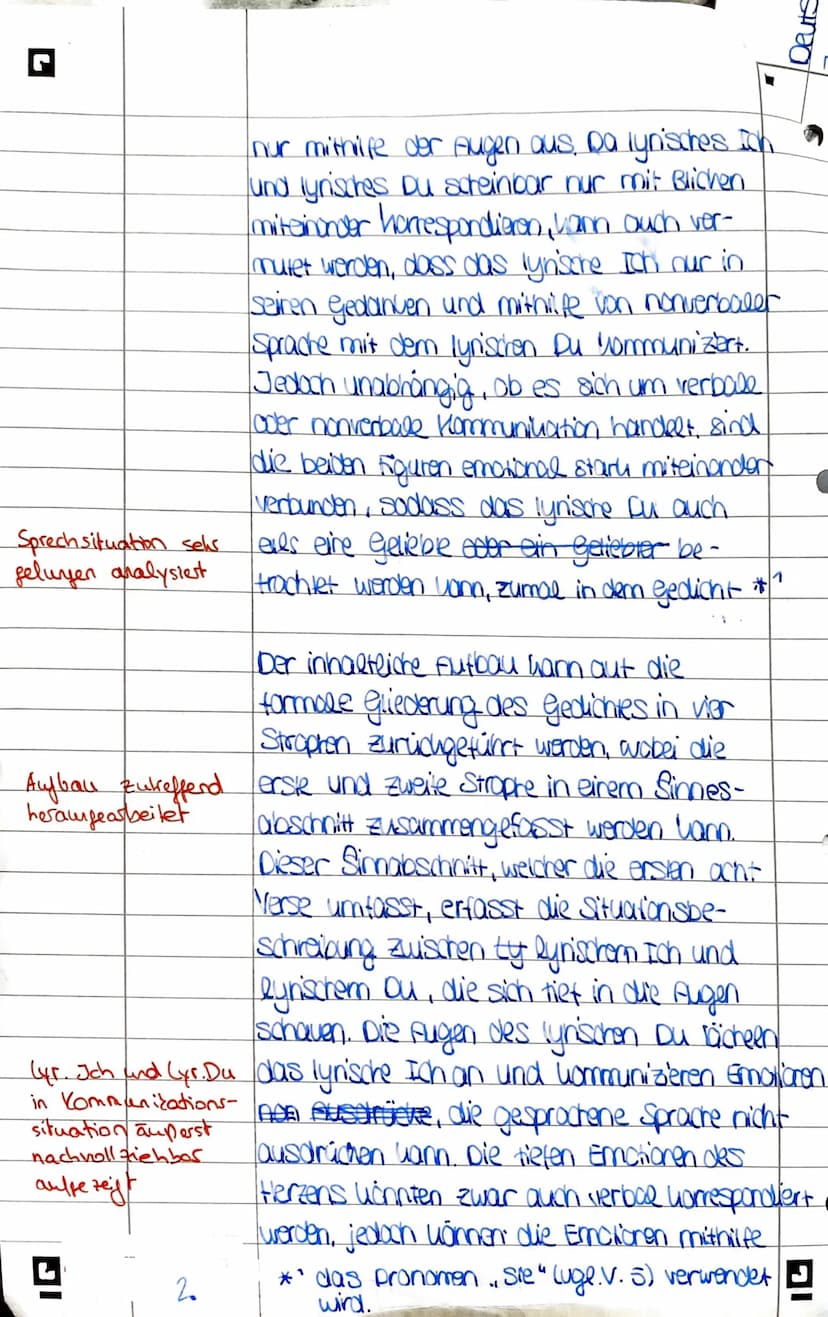 Deuts
nur mithilfe der Augen aus. Da lyrisches Ich
und lyrisches Du scheinbar nur mit Blicken
miteinander korrespondieren, kann auch ver-
mutet werden, dass das lyrische Ich nur in
seinen Gedanken und mithilfe von nonverbaler
Sprache mit dem lyrischen Du kommuniziert.
Jedoch unabhängig, ob es sich um verbale
oder nonverbale Kommunikation handelt, sind
die beiden Figuren emotional stark miteinander
verbunden, sodass das lyrische Du auch
Sprechsituation sehr
gelungen analysiert
als eine Geliebte oder ein Geliebter be-
trachtet werden kann, zumal in dem Gedicht *1
Der inhaltliche Aufbau kann auf die
formale Gliederung des Gedichtes in vier
Strophen zurückgeführt werden, wobei die
Aufbau zutreffend
herausgearbeitet
erste und zweite Strophe in einem Sinnes-
abschnitt zusammengefasst werden kann.
Dieser Sinnabschnitt, welcher die ersten acht
Verse umfasst, erfasst die Situationsbe-
schreibung zwischen ly lyrischem Ich und
lyrischem Du, die sich tief in die Augen
schauen. Die Augen des lyrischen Du lächeln
lyr. Ich und lyr. Du
in Kommunikations-
situation äußerst
nachvollziehbar
aufgezeigt
das lyrische Ich an und kommunizieren Emotionen
die gesprochene Sprache nicht
ausdrücken kann. Die tiefen Emotionen des
Herzens könnten zwar auch verbal korrespondiert
werden, jedoch können die Emotionen mithilfe
*1 das Pronomen „sie" (vgl. V. 5) verwendet
wird.
2.